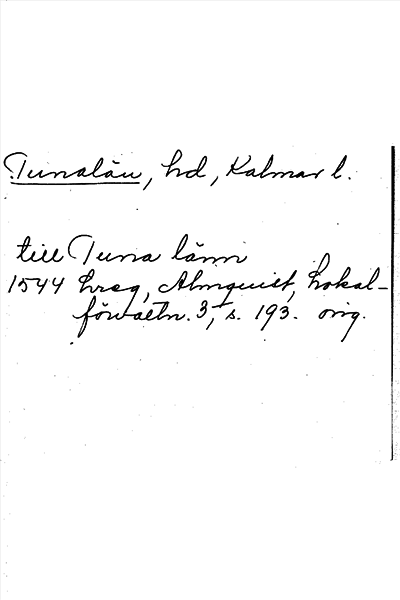 Tunalän, hd, Kalmar l.
till Tuna länn
1544 hreg, Almquist, Lokal-
förvaltn. 3, s. 193. orig.